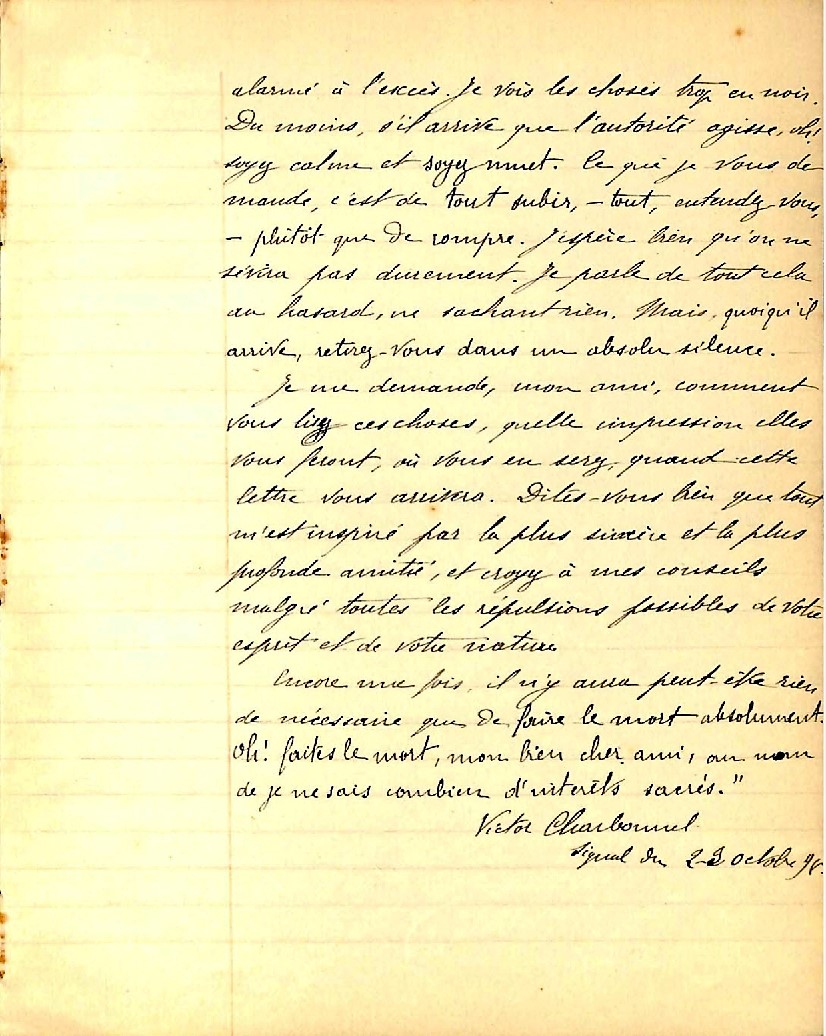 alarmé à l'excès. Je vois les choses trop en noir.
Du moins, s'il arrive que l'autorité agisse, oh!
soyez calme et soyez muet. Ce que je vous de
mande, c'est de tout subir, – tout, entendez vous,
– plutôt que de rompre. J'espère bien qu'on ne
sévira pas durement. Je parle de tout cela
au hasard, ne sachant rien. Mais, quoiqu'il
arrive, retirez-vous dans un absolu silence.
Je me demande, mon ami, comment
vous lisez ces choses, quelle impression elles
vous feront, où vous en serez, quand cette
lettre vous arrivera. Dites-vous bien que tout
m'est inspiré par la plus sincère et la plus
profonde amitié, et croyez à mes conseils
malgré toutes les répulsions possibles de votre
esprit et de votre nature
Encore une fois, il n'y aura peut-être rien
de nécessaire que de faire le mort absolument.
Oh! faites le mort, mon bien cher ami, au nom
de je ne sais combien d'intérêts sacrés."
Victor Charbonnel
Signal du 23 octobre